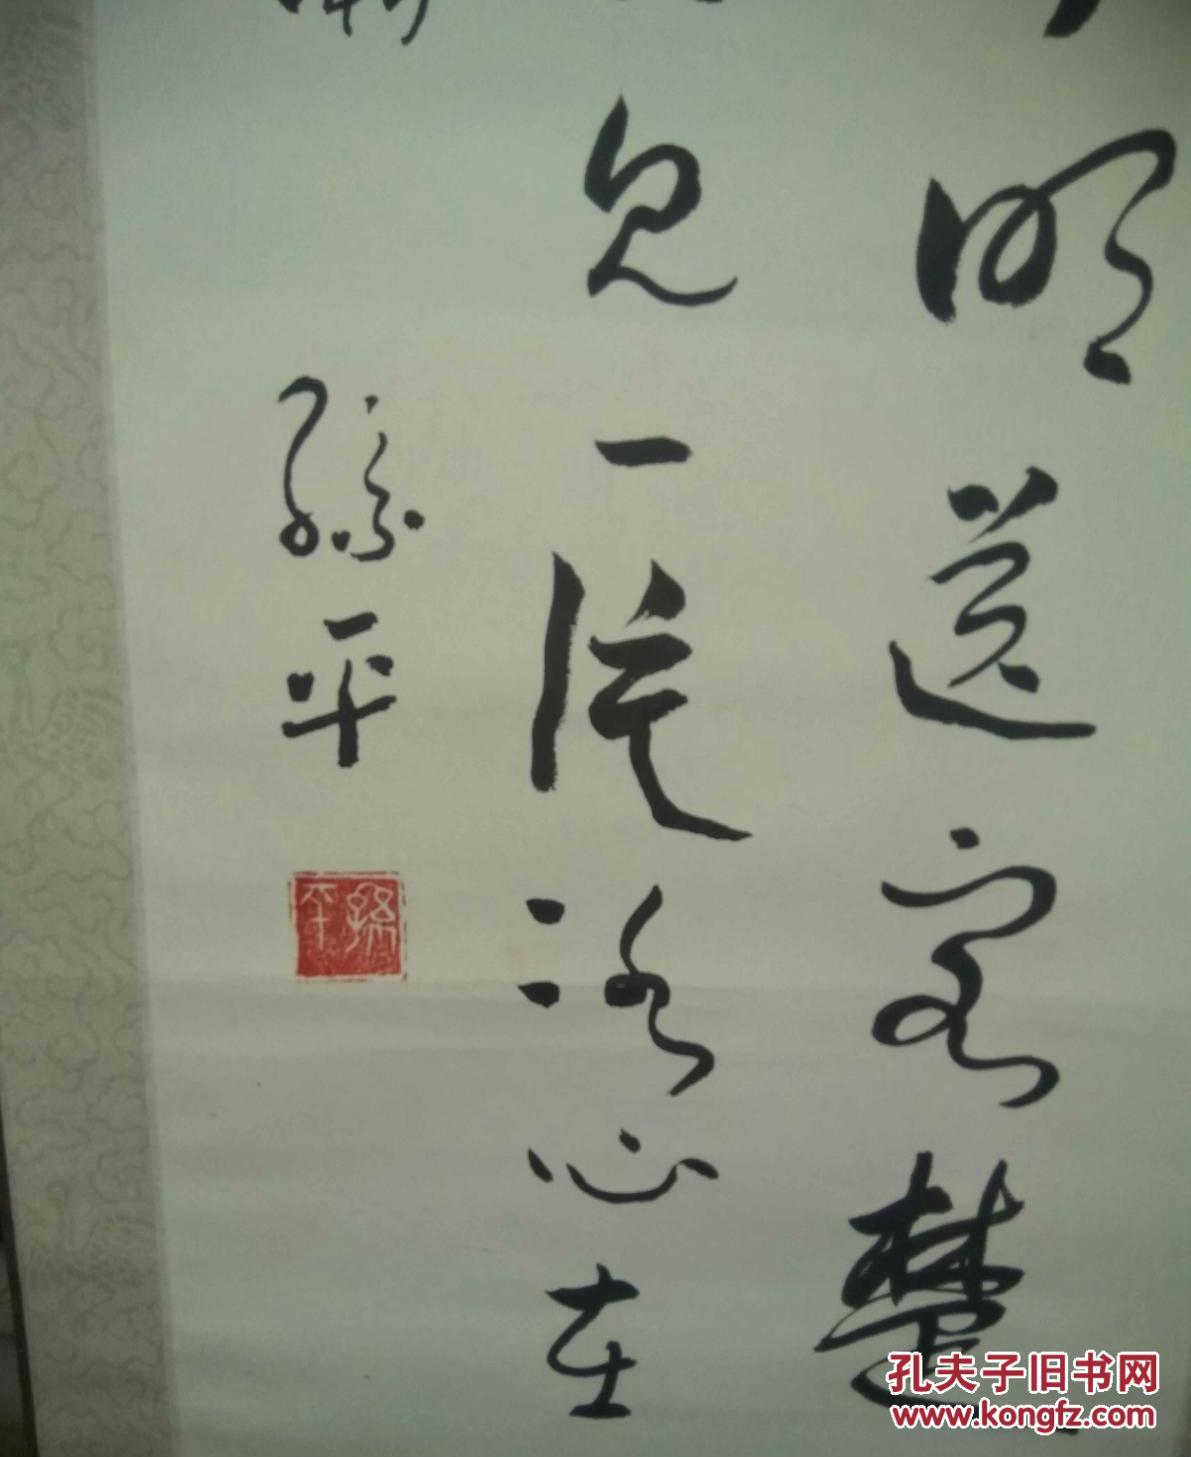 明送客楚
见一片冰心在
孫平
孫平
孔夫子旧书网
www.kongfz.com